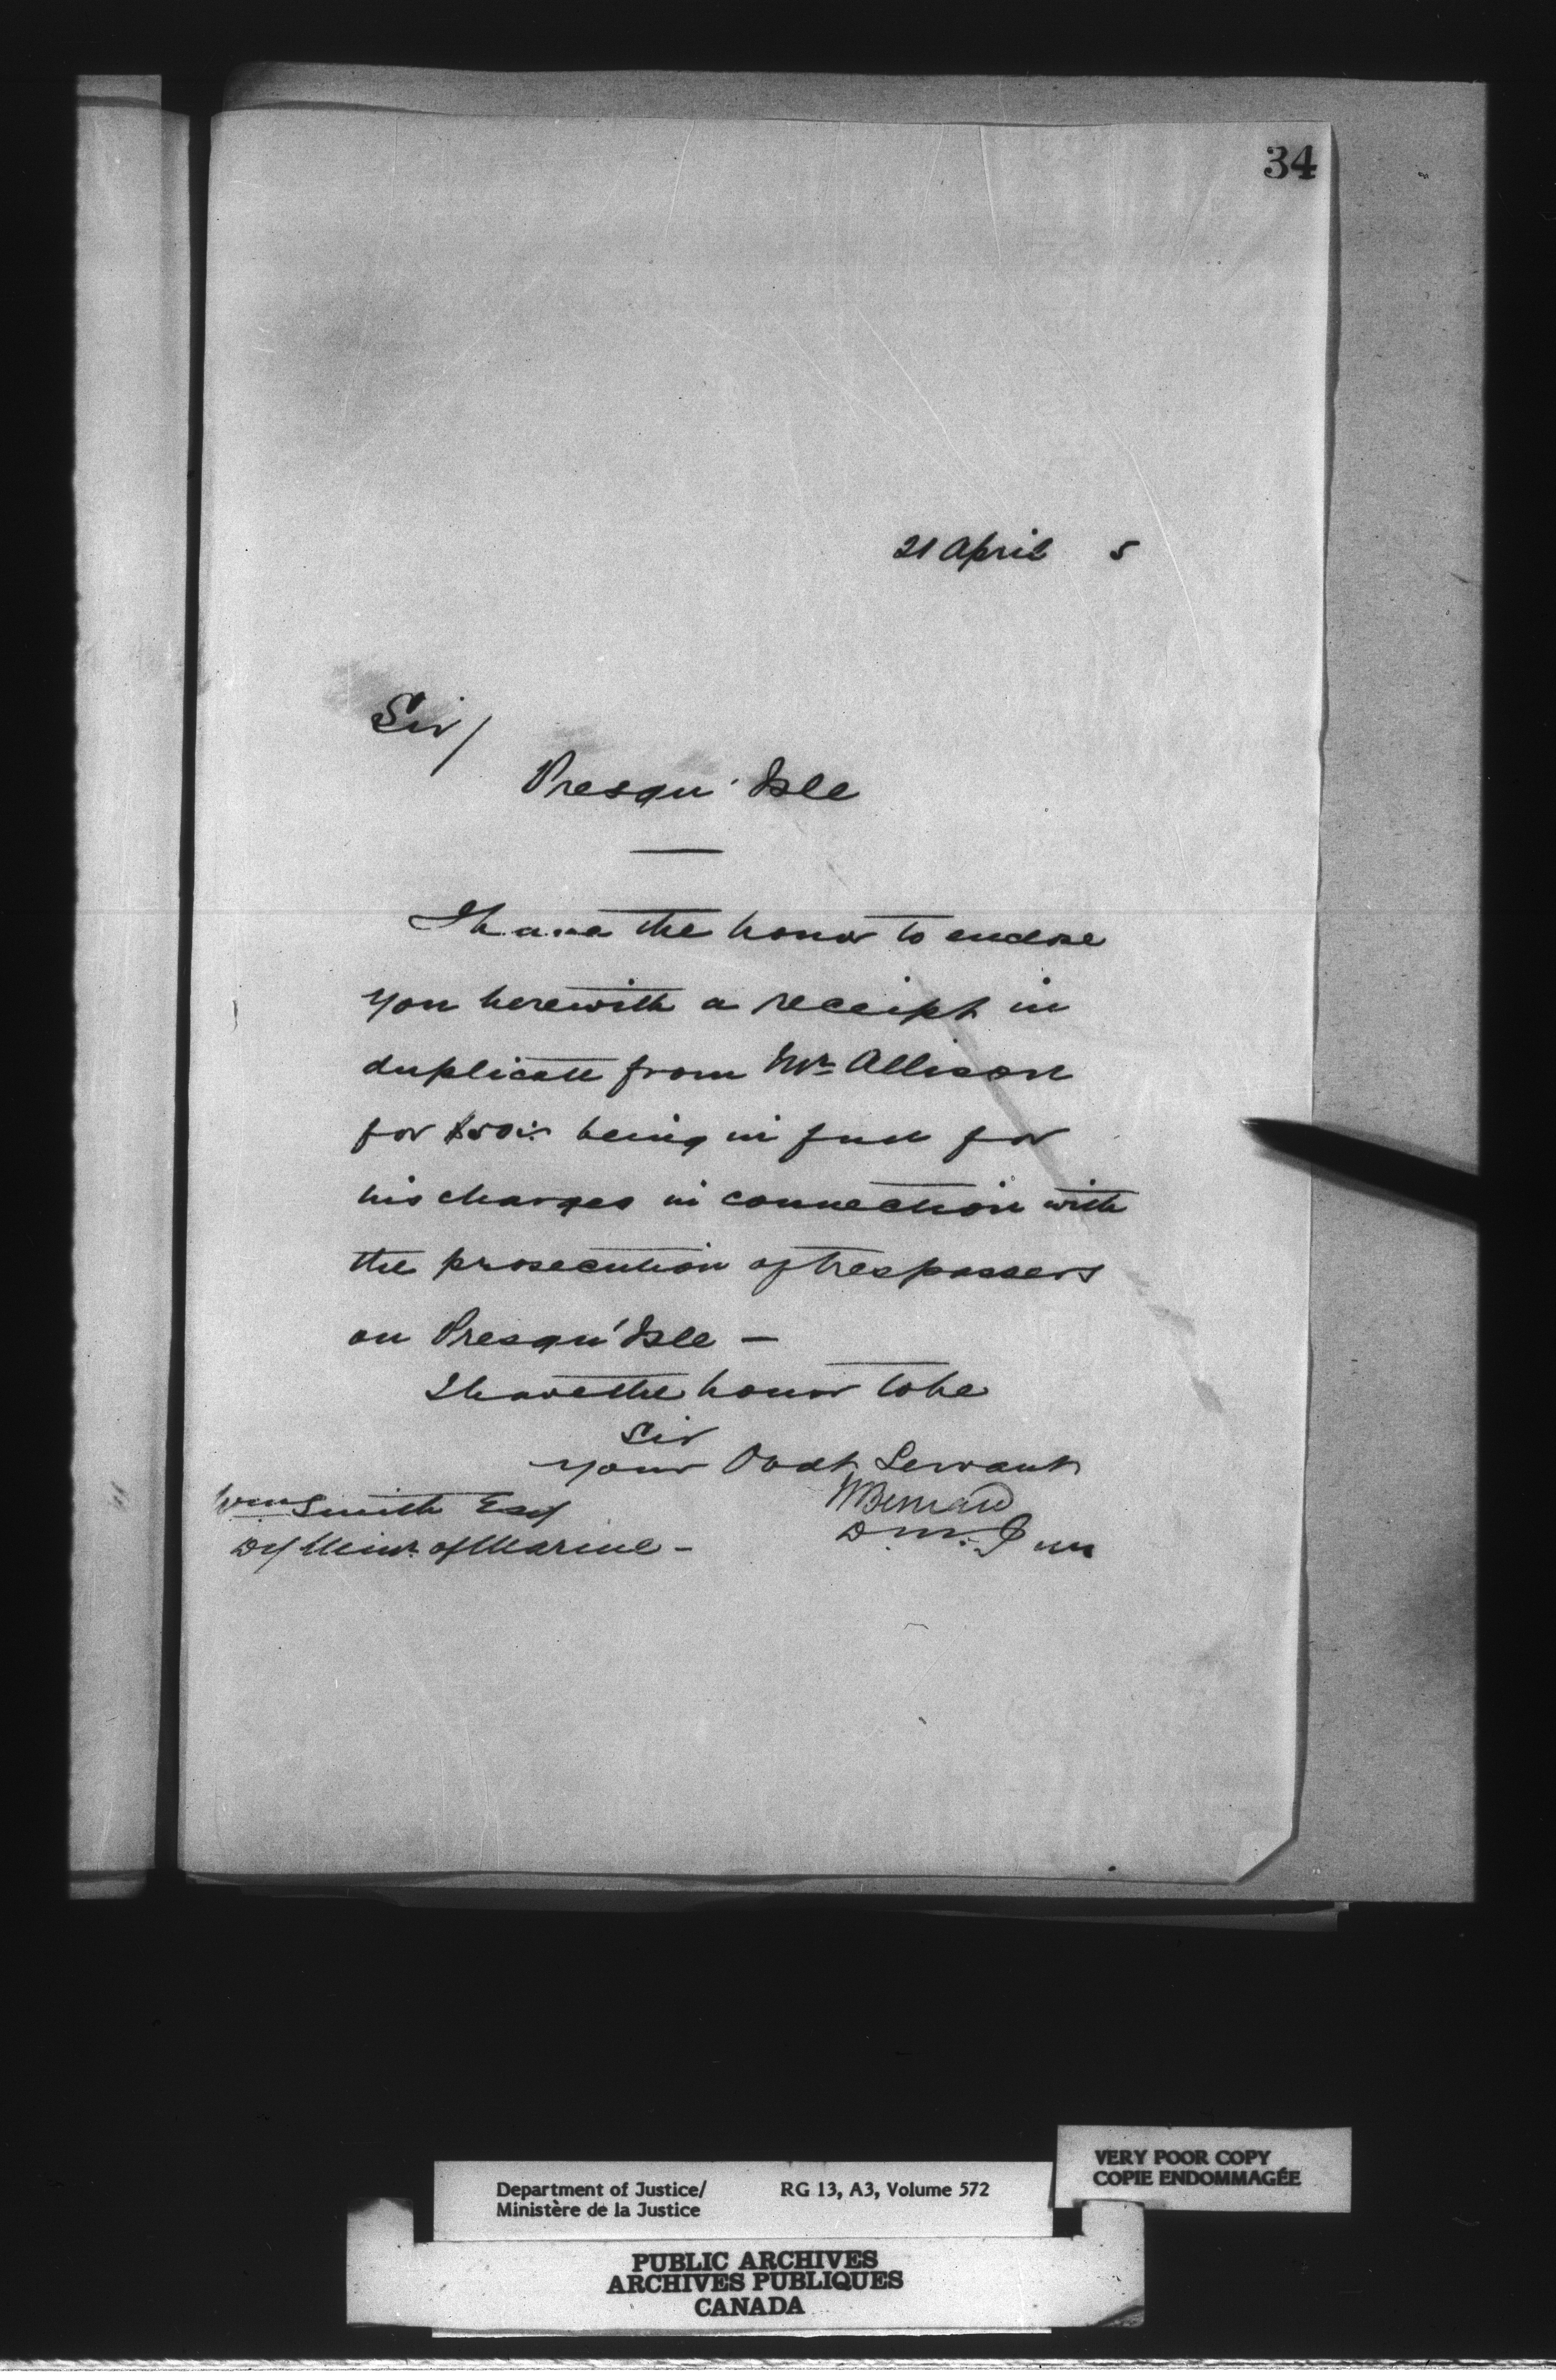 34
21 April 5
Sir/
Presqu' Isle
I have the honor to enclose
you herewith a receipt in
duplicate from Mr Allison
for $50 being in full for
his charges in connection with
the prosecution of trespassers
on Presqu' Isle —
I have the honor to be
Sir
Your Obdt Servant
Wm Smith Esq
Dy Minr. of Marine -
HBernard
D. M. J
Department of Justice/ RG 13, A3, Volume 572
Ministère de la Justice
VERY POOR COPY
COPIE ENDOMMAGÉE
PUBLIC ARCHIVES
ARCHIVES PUBLIQUES
CANADA